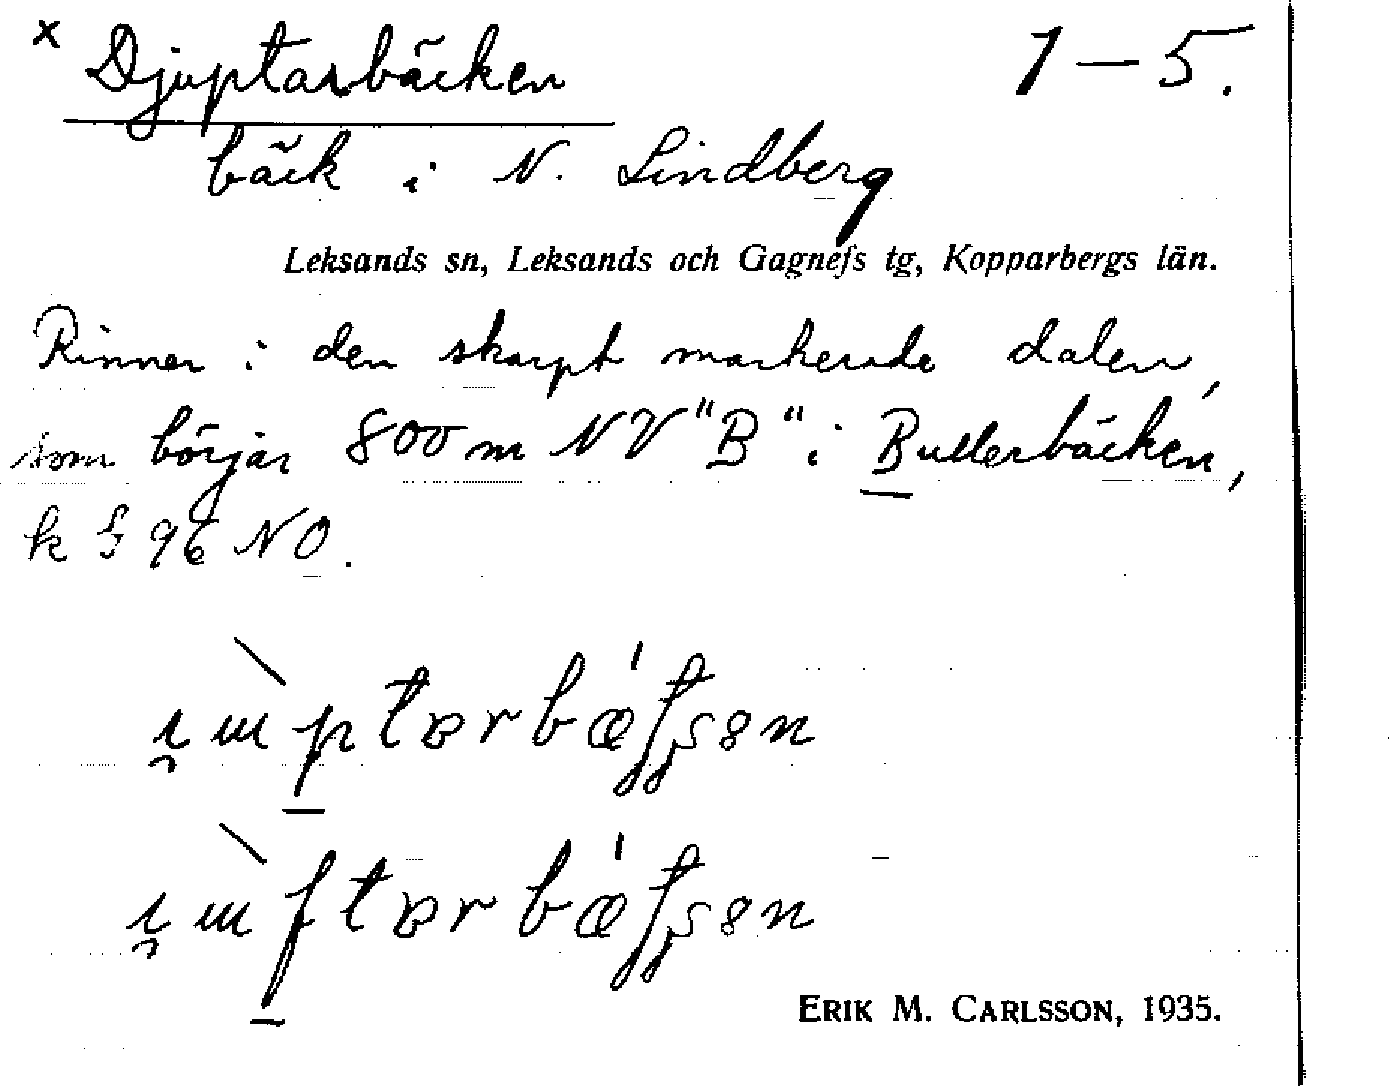 x Djuptarbäcken 1–5.
bäck i N. Lindberg
Leksands sn, Leksands och Gagnefs tg, Kopparbergs län.
Rinner i den skarpt markerade dalen,
som börjar 800 m NV "B" i Bullerbäcken,
k § 96 NO.
ERIK M. CARLSSON, 1935.